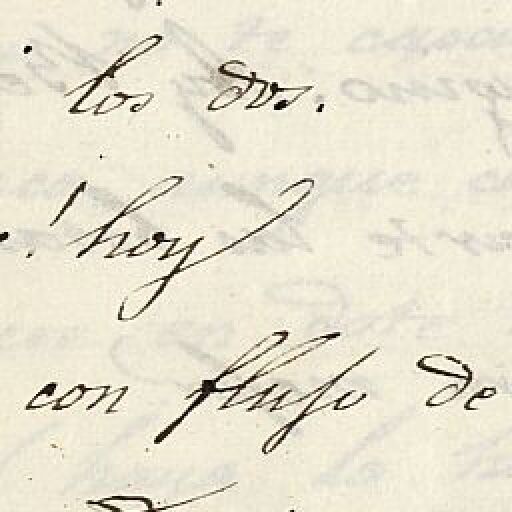 los dos.
! hoy
con flujo de